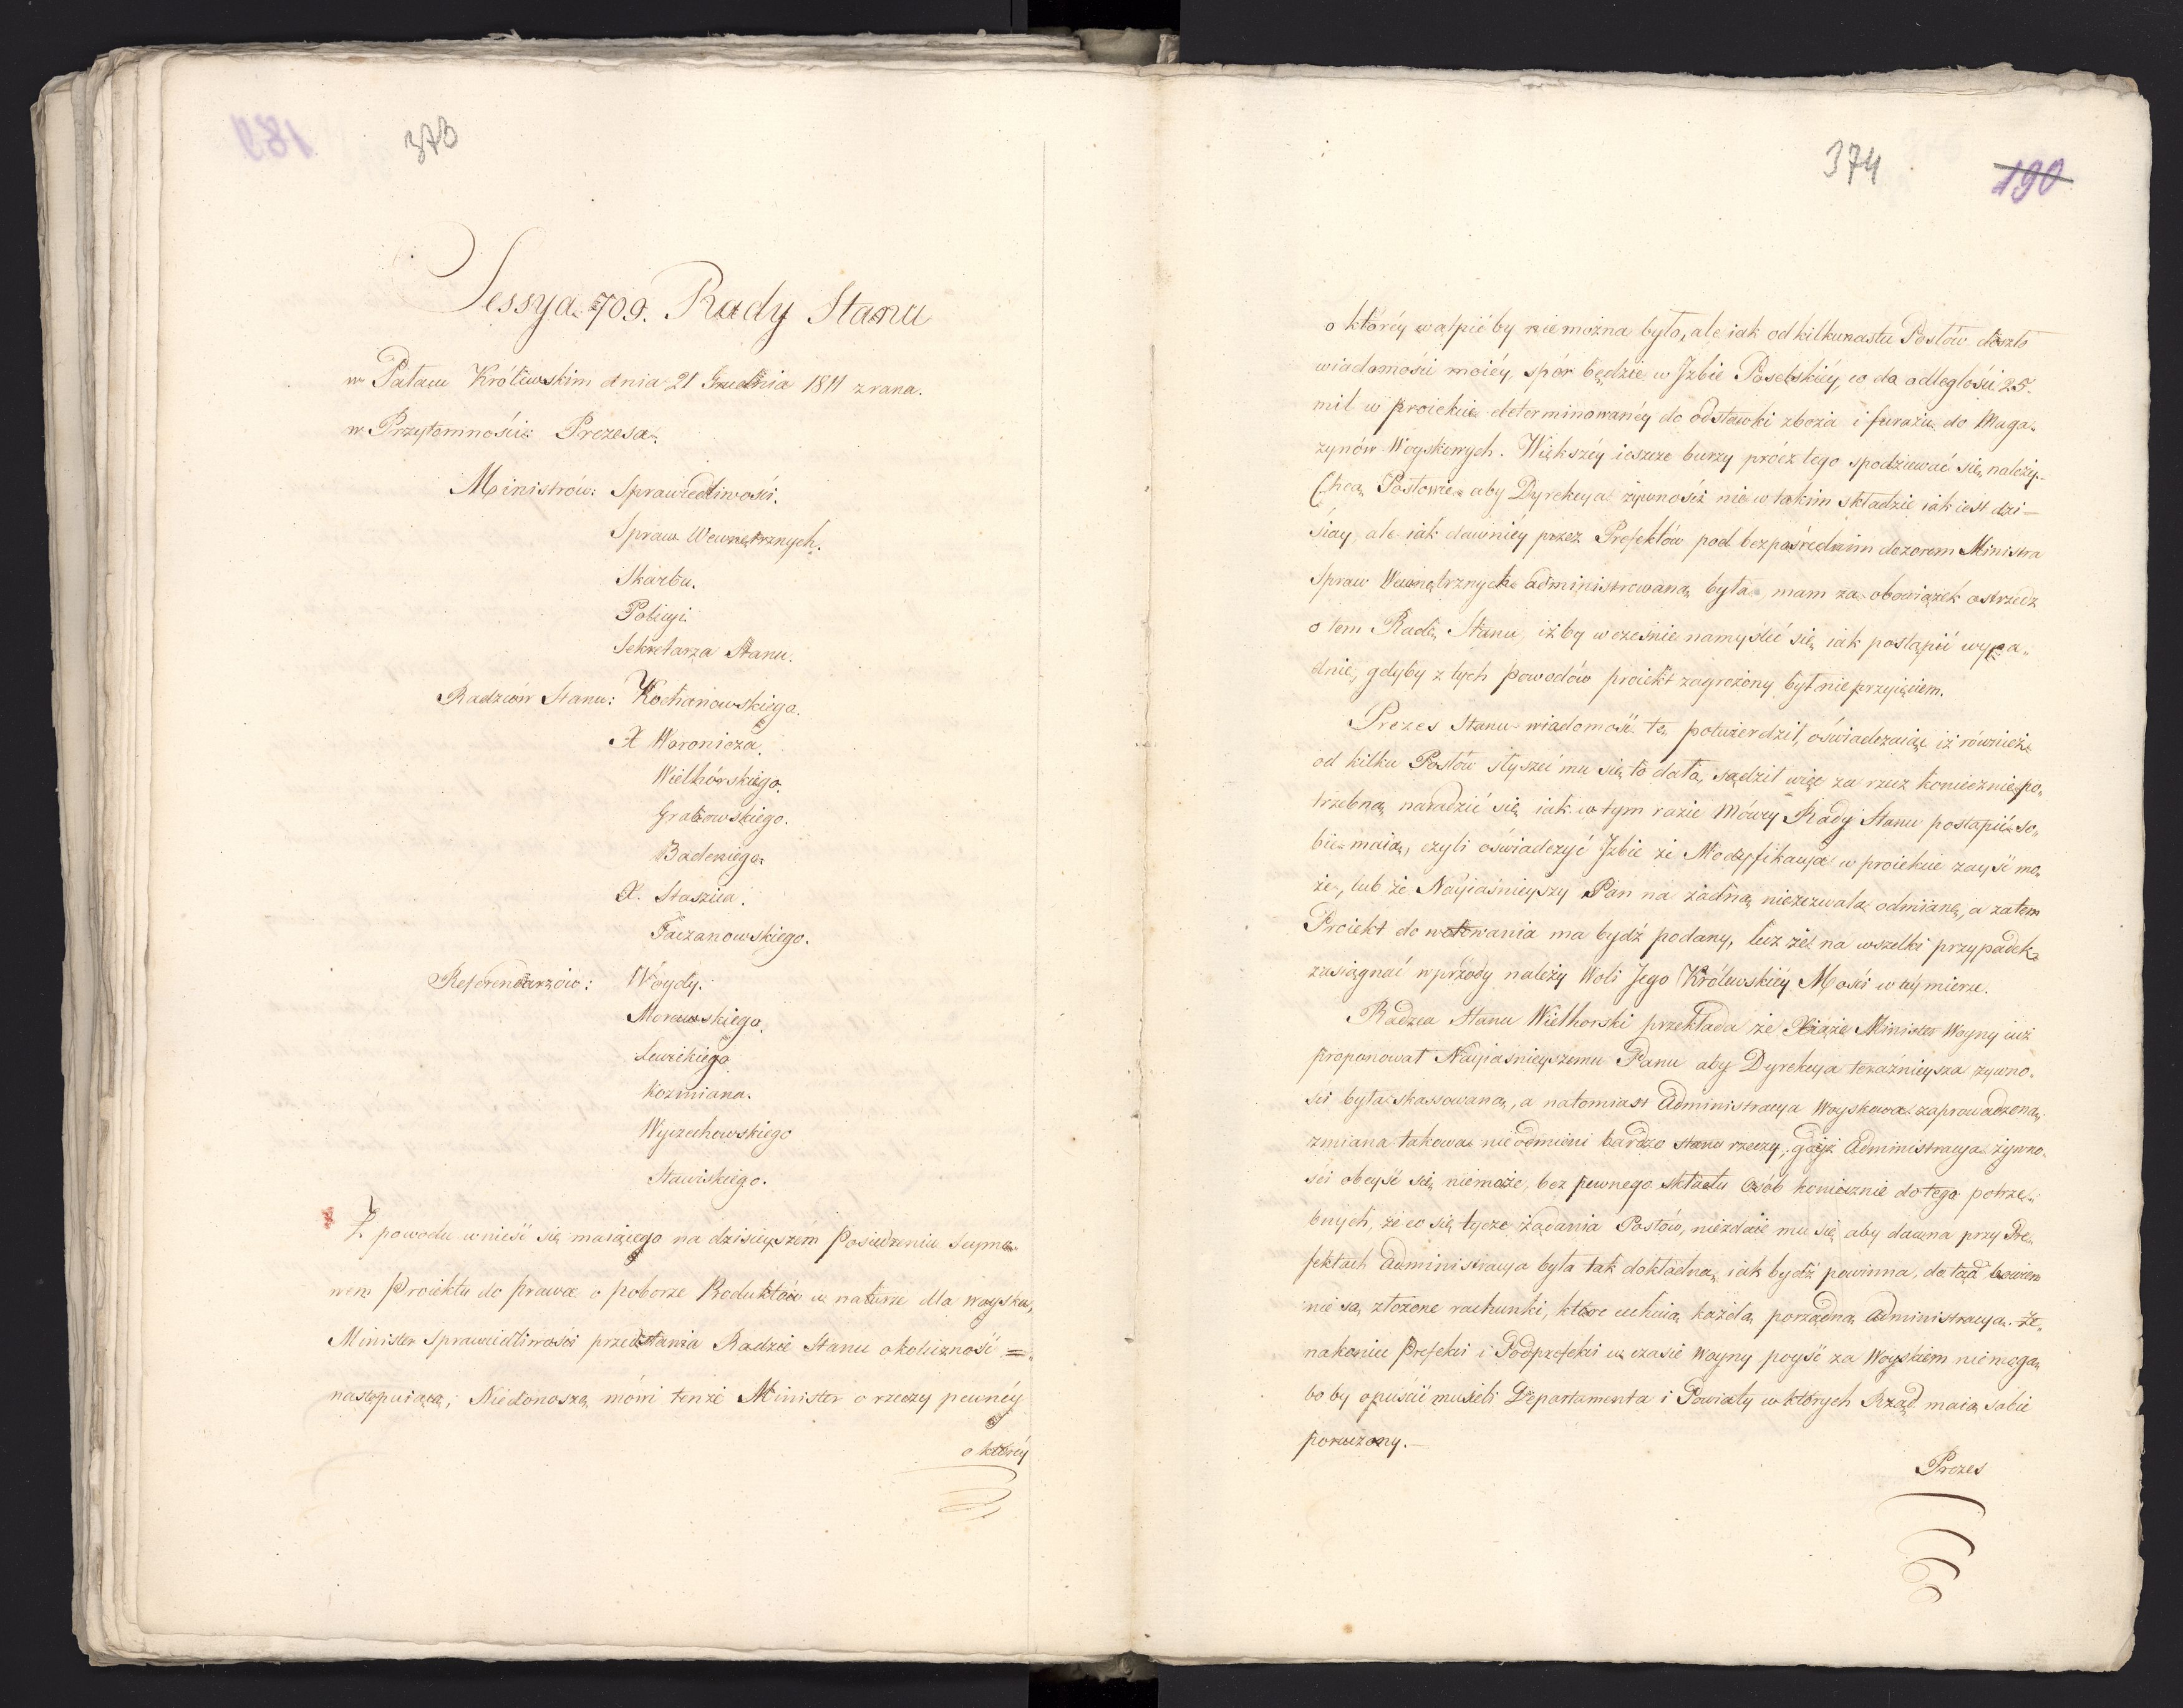 373
189
Sessya 709. Rady Stanu
w Pałacu Królewskim dnia 21 Grudnia 1811 zrana.
w Przytomności: Prezesa.
Ministrów: Sprawiedliwości.
Spraw Wewnętrznych.
Skarbu.
Policyi.
Sekretarza Stanu.
Radzców Stanu: Kochanowskiego.
X Woronicza.
Wielhorskiego.
Grabowskiego.
Badeniego.
X. Staszica.
Faczanowskiego.
Referendarzów: Woydy.
Morawskiego.
Lewickiego
Kozmiana.
Wyczechowskiego
Stawiskiego.
Z powodu wnieść się maiącego na dzisieyszém Posiedzeniu Seymo„
wem Proiektu do prawa o poborze Produktów w naturze dla woyska,
Minister Sprawiedliwości przedstawia Radzie Stanu okoliczność =
następuiącą; Niedonoszę mówi tenże Minister o rzeczy pewnéy
o któréy
374
190
o któréy wątpić by nie można było, ale iak od kilkunastu Posłów doszło
wiadomości moiéy, spór będzie w Jzbie Poselskiéy co do odległości 25.
mil w proiekcie determinowanéy do odstawki zboża i furażu do Maga„
zynów Woyskowych. Większéy ieszcze burzy prócz tego spodziewać się należy.
Chcą Posłowie aby Dyrekcya żywności nie w takim składzie iak iest dzi–
siay, ale iak dawniéy przez Prefektów pod bezpośrednim dozorem Ministra
Spraw Wewnętrznych administrowaną była, mam za obowiązek ostrzedz
o tem Radę Stanu, iżby wcześnie namyślić się, iak postąpić wypa„
dnie, gdyby z tych powodów proiekt zagrożony był nieprzyięciem.
Prezes Stanu wiadomość tę potwierdził, oświadczaiąc iż również
od kilku Posłów słyszeć mu się to dało, sądził więc za rzecz koniecznie po„
trzebną naradzić się iak w tym razie Mówcy Rady Stanu postąpić so„
bie maią, czyli oświadczyć Jzbie że Modyfikacya w proiekcie zayść mo„
że, lub że Nayiaśnieyszy Pan na żadną niezezwala odmianę, a zatem
Proiekt do wotowania ma bydź podany, lecz że na wszelki przypadek
zasiągnąć wprzódy należy Woli Jego Królewskiéy Mości w téy mierze.
Radzca Stanu Wielhorski przekłada że Xiąże Minister Woyny iuż
proponował Nayiaśnieyszemu Panu aby Dyrekcya teraźnieysza żywno„
ści była skassowaną, a natomiast Administracya Woyskowa zaprowadzoną,
zmiana takowa nie odmieni bardzo stanu rzeczy, gdyż Administracya żywno„
ści obeyść się niemoże, bez pewnego składu Osób koniecznie do tego potrze„
bnych, że co się tycze żądania Posłów, niezdaie mu się aby dawna przy Pre„
fektach Administracya była tak dokładną, iak bydź powinna, dotąd bowiem
nie są złożone rachunki, które cechuią każdą porządną Administracyą. Że„
nakoniec Prefekci i Podprefekci w czasie Woyny poyść za Woyskiem niemogą
bo by opuścić musieli Departamenta i Powiaty w których Rząd maią sobie
poruczony.—
Prezes